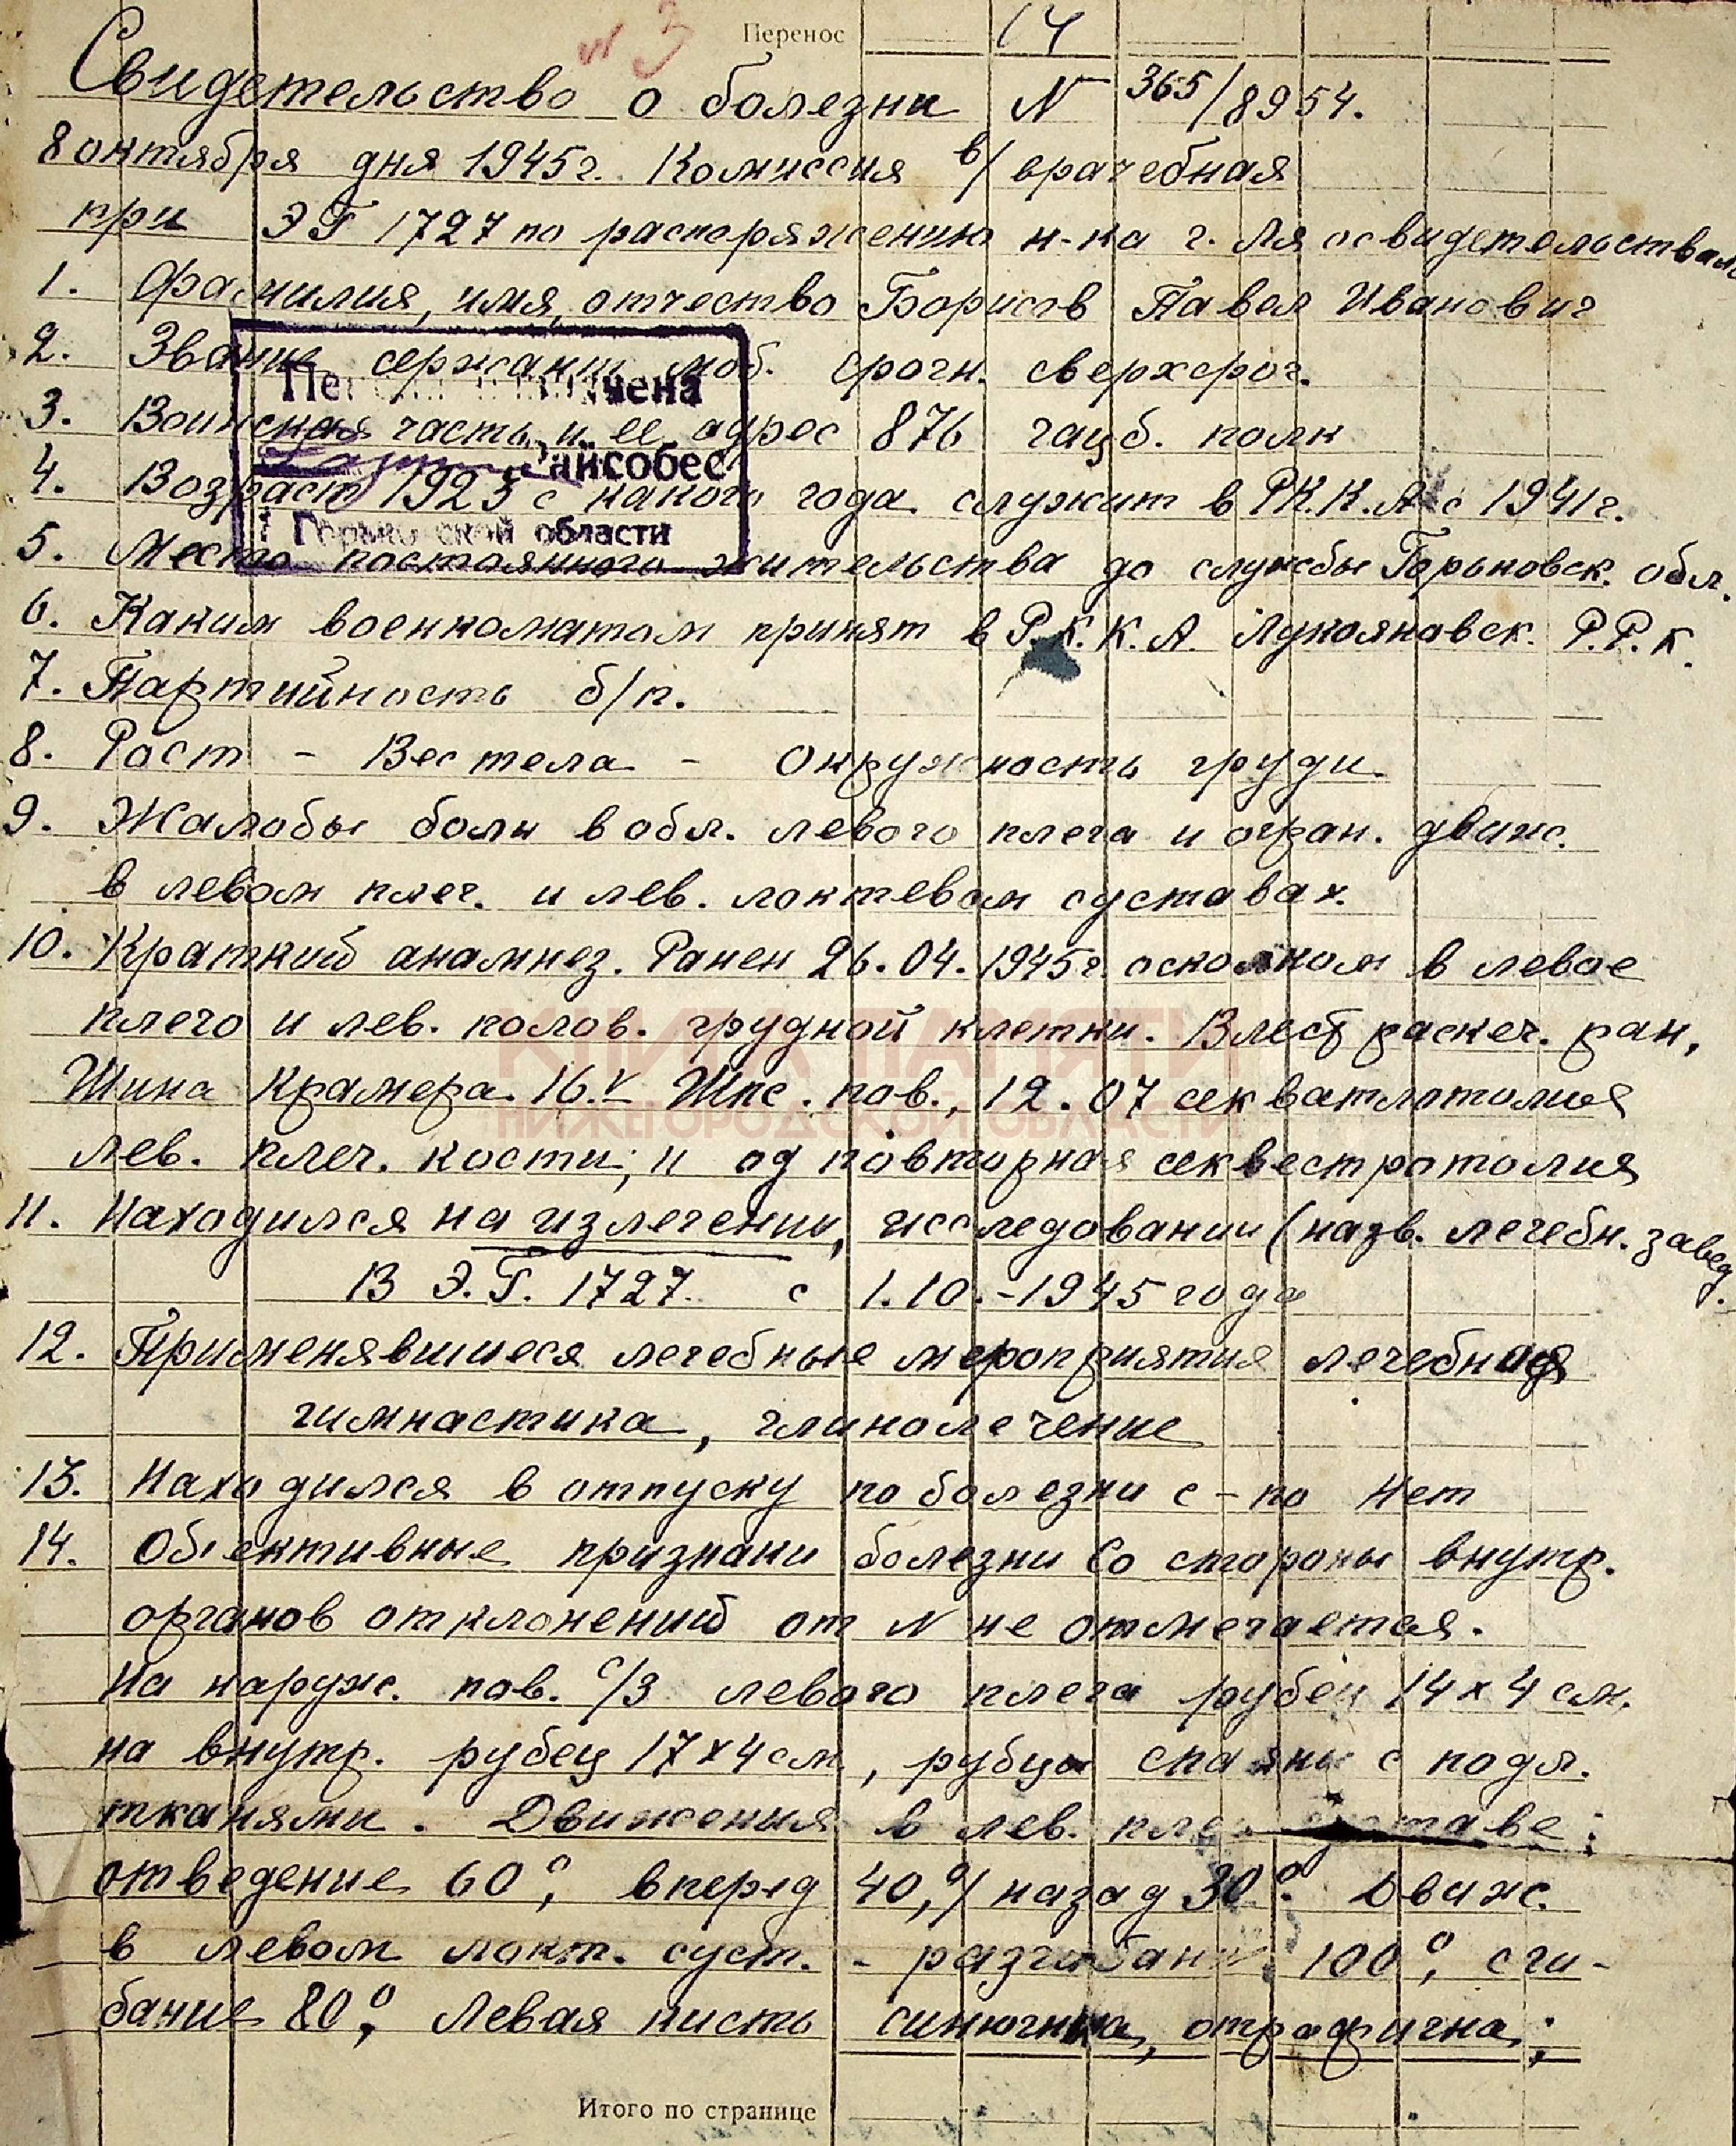 № 3
Перенос 14
Свидетельство о болезни N 365/8954.
8 октября дня 1945г. Комиссия в/врачебная
при ЭГ 1727 по распоряжению н-ка г. для освидетельствал
1. Фамилия, имя, отчество Борисов Павел Иванович
2. Звание сержант моб. срочн. сверхсроч.
3. Воинская часть и ее адрес 876 гауб. полк
4. Возраст 1923 с какого года служит в Р.К.К.А. с 1941г.
5. Место постоянного жительства до службы Горьковск. обл.
чена
Райсобес
Горьковской области
6. Каким военкоматом принят в Р.К.К.А. Лукояновск. Р.Р.К.
7. Партийность б/п.
8. Рост - Вес тела - Окружность груди
9. Жалобы боли в обл. левого плеча и огран. движ.
в левом плеч. и лев. локтевом суставах.
10. Краткий анамнез. Ранен 26.04.1945г. осколком в левое
плечо и лев. полов. грудной клетки. В лесб рассеч. ран,
Шина Крамера. 16.V Гипс. пов., 12.07 секватлотомия
лев. плеч. кости, и од повторная секвестротомия
КНИГА ПАМЯТИ
НИЖЕГОРОДСКОЙ ОБЛАСТИ
11. Находился на излечении, исследовании (назв. лечебн. завед.
В Э.Г. 1727 с 1.10.-1945 года
12. Применявшиеся лечебные мероприятия лечебная
гимнастика, глинолечение
13. Находился в отпуску по болезни с - по Нет
14. Обективные признаки болезни Со стороны внутр.
органов отклонений от N не отмечается.
На наруж. пов. с/3 левого плеча рубец 14x4 см,
на внутр. рубец 17x4 см, рубцы спаяны с подл.
тканями. Движения в лев. плеч суставе:
отведение 60°, вперед 40,°/ назад 30°. Движ.
в левом локт. суст. - разгибание 100°, сги-
бание 80°, Левая кисть синюшна, отрофична;
Итого по странице